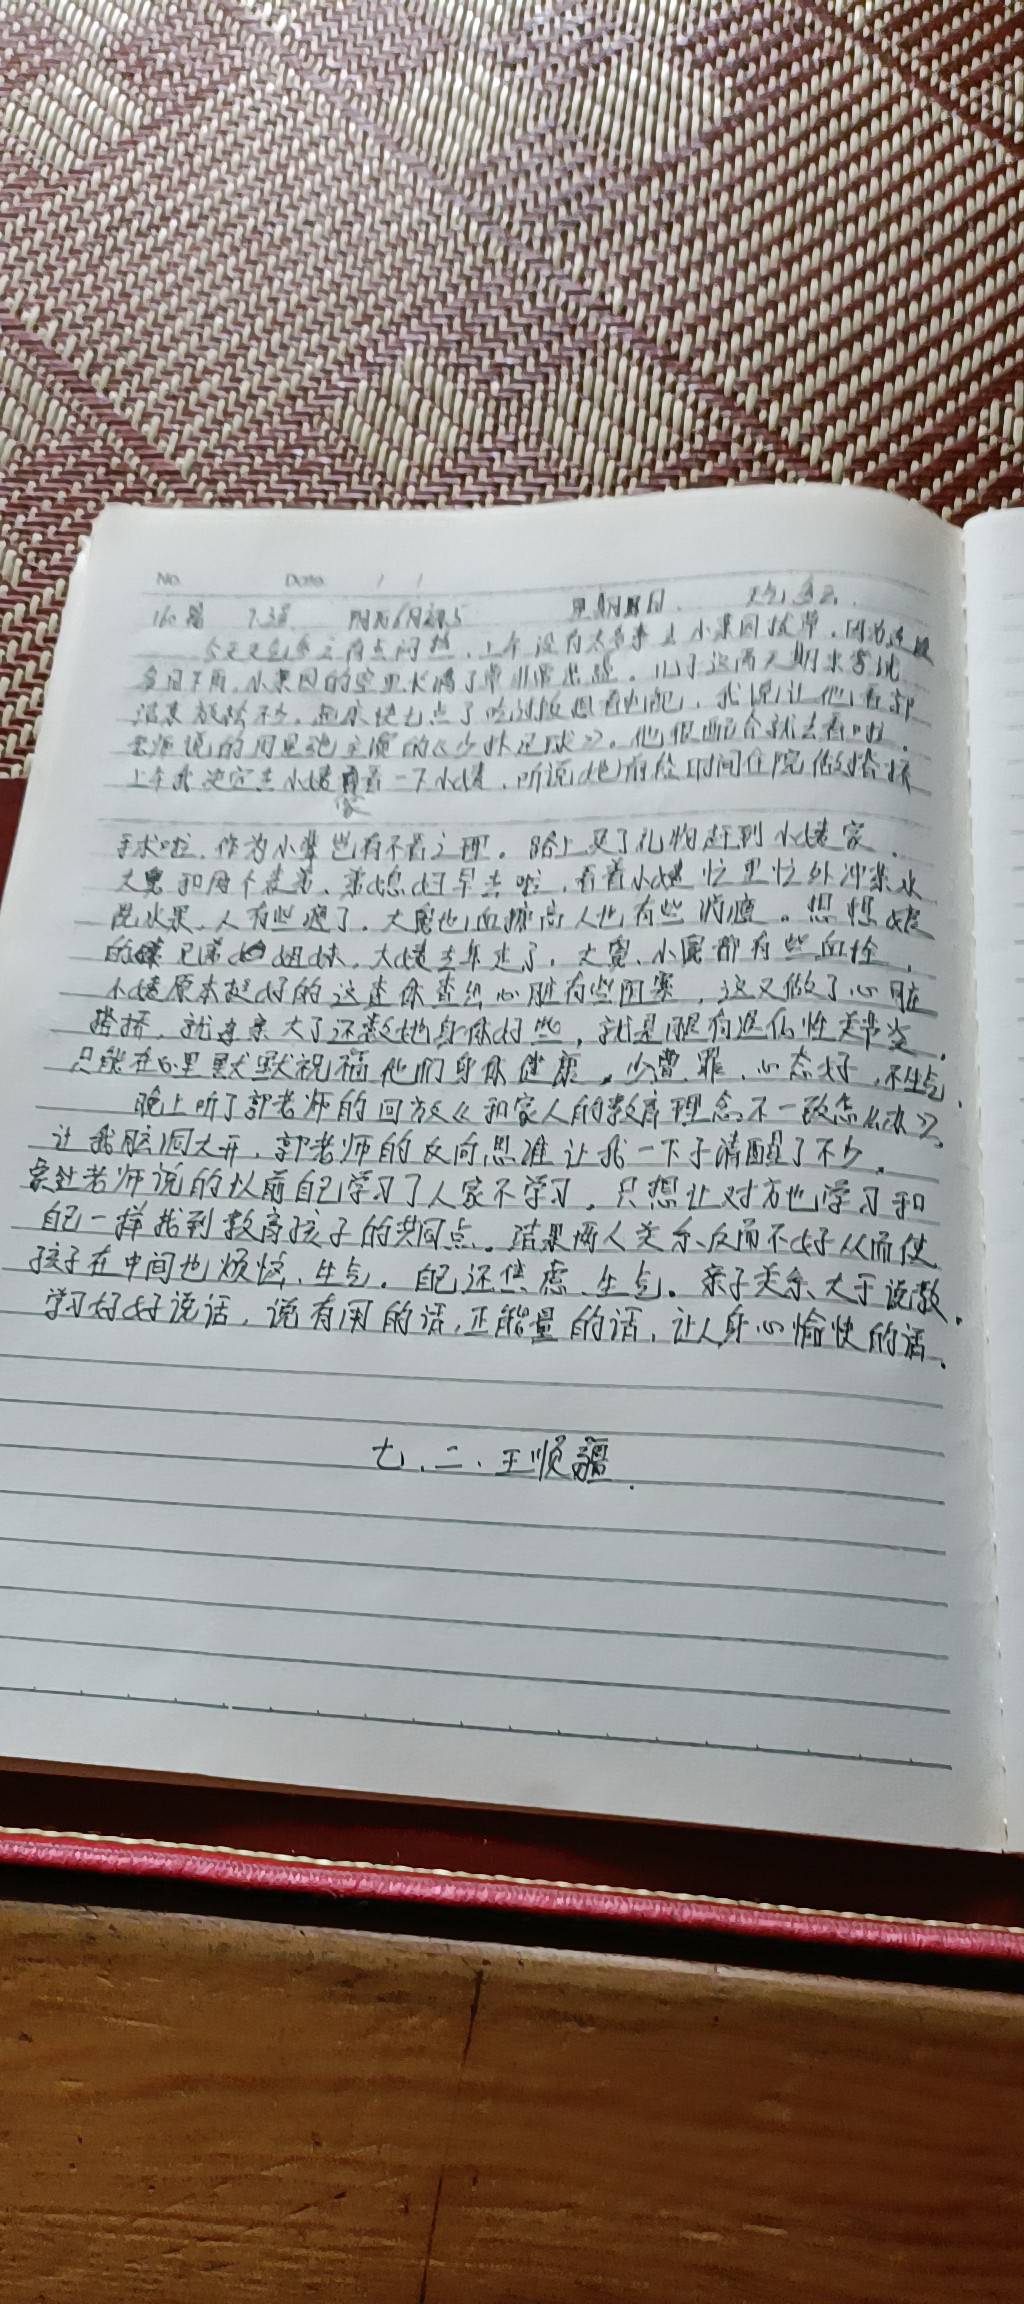 No. Date / /
160篇 7.3号 阴历6月初5 星期四 天气多云.
今天又是多云有点闷热,上午没有太多事去小菜园拔草,因为连
多日下雨,小菜园的空里长满了草非常出 。 这两天期末考试
结束放松不少,起床快七点了吃过饭想看电视,我说让他们看郭
老师说的周星驰主演的《少林足球》。他很配合就去看啦.
上午我决定去小姨家看一下小姨,听说她前段时间住院做搭桥
手术啦,作为小辈岂有不看之理。路上买了礼物赶到小姨家.
大舅和两个表弟、弟媳妇早去啦,看着小姨忙里忙外冲茶水
洗水果,人有些瘦了,大舅也血脉高人也有些消瘦。想想
的 兄弟 姐妹,大姨去年走了,大舅、小舅都有些血栓,
小姨原本挺好的这查体查出心脏有些阻塞,这又做了心脏
搭桥,就 亲大了还数她身体好些,就是腿有退化性关节炎.
只能在心里默默祝福他们身体健康,少遭罪,心态好,不生气.
晚上听了郭老师的回放《和家人的教育理念不一致怎么办》,
让我脑洞大开,郭老师的反向思维让我一下子清醒了不少.
象处老师说的以前自己学习了人家不学习,只想让对方也学习和
自己一样找到教育孩子的共同点。结果两人关系反而不好从而使
孩子在中间也烦恼、生气。自己还焦虑、生气。亲子关系大于说教.
学习好好说话,说有用的话,正能量的话,让人身心愉快的话.
七.二.王顺疆.